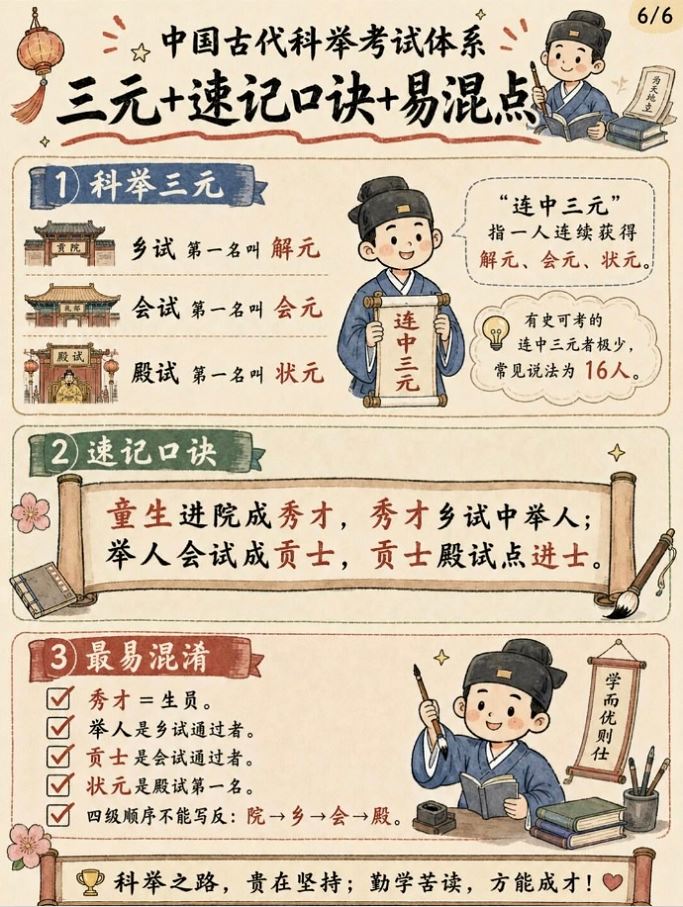 6/6
中国古代科举考试体系
三元+速记口诀+易混点
为天地立
1 科举三元
贡院
乡试 第一名叫 解元
会试 第一名叫 会元
殿试
殿试 第一名叫 状元
连中三元
“连中三元”
指一人连续获得
解元、会元、状元。
有史可考的
连中三元者极少，
常见说法为 16人。
2 速记口诀
童生进院成秀才，秀才乡试中举人；
举人会试成贡士，贡士殿试点进士。
3 最易混淆
秀才＝生员。
举人是乡试通过者。
贡士是会试通过者。
状元是殿试第一名。
四级顺序不能写反：院→乡→会→殿。
学而优则仕
科举之路，贵在坚持；勤学苦读，方能成才！